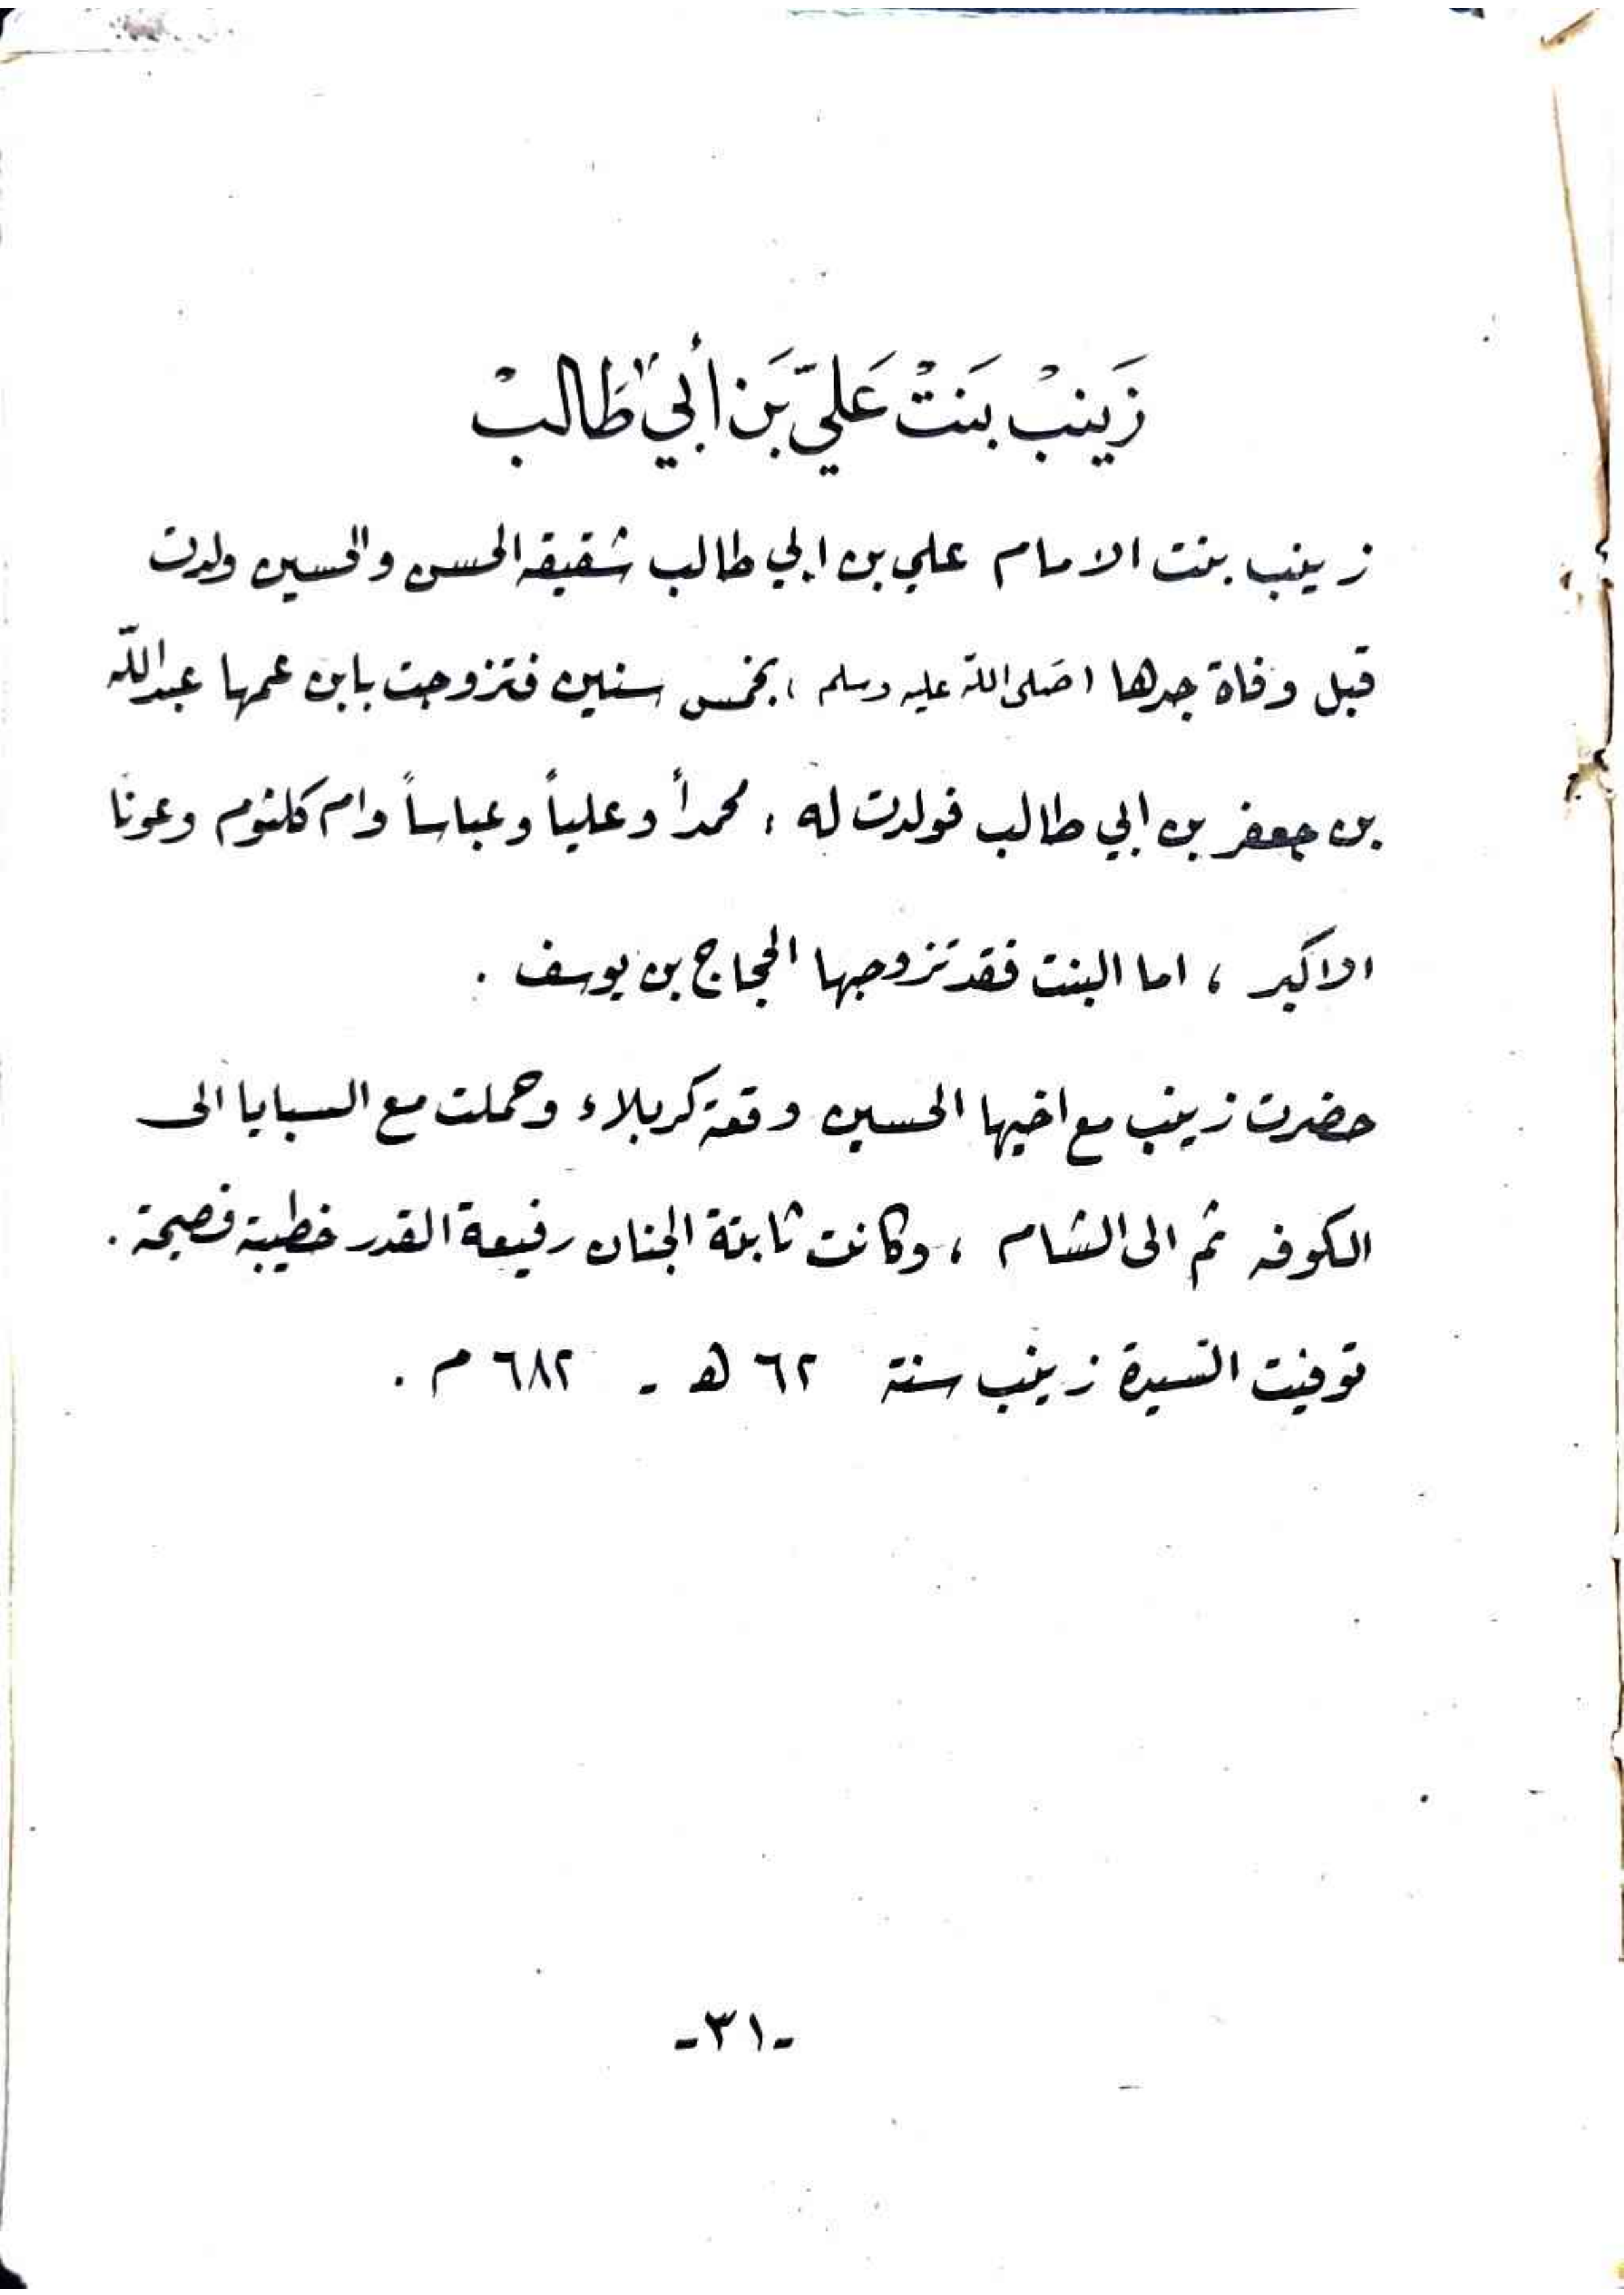 زَينبْ بَنتْ عَليّ بَن أبي طَالبْ
زينب بنت الامام علي بن ابي طالب شقيقه الحسن والحسين ولدت
قبل وفاة جدها (صَلى الله عليه وسلم) بخمس سنين فتزوجت بابن عمها عبدالله
بن جعفر بن ابي طالب فولدت له : محمداً وعلياً وعباساً وام كلثوم وعونا
الاكبر ، اما البنت فقد تزوجها الحجاج بن يوسف .
حضرت زينب مع اخيها الحسين وقعة كربلاء وحملت مع السبايا الى
الكوفه ثم الى الشام ، وكانت ثابتة الجنان رفيعة القدر خطيبة فصيحة .
توفيت السيدة زينب سنة ٦٢ هـ - ٦٨٢ م .
-٣١-